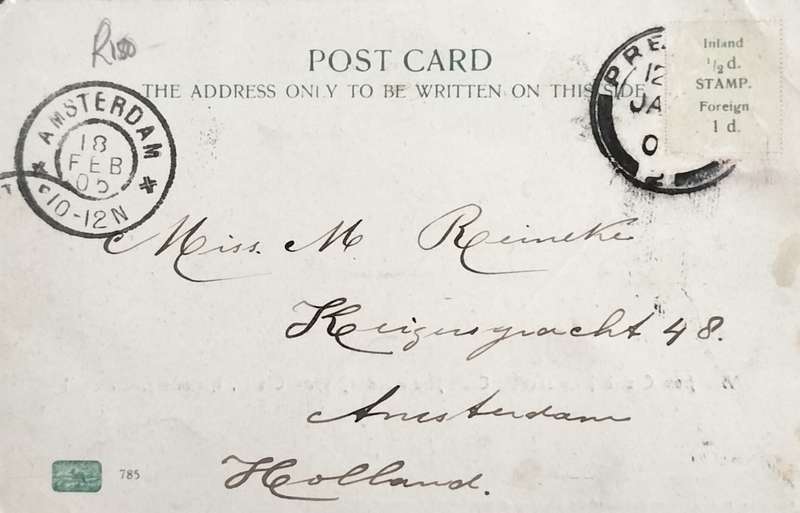 R150
POST CARD
THE ADDRESS ONLY TO BE WRITTEN ON THIS SIDE
Inland
½ d.
STAMP.
Foreign
1 d.
PRE
12
JA
0
AMSTERDAM
18
FEB
05
10-12N
Miss. M Reineke
Keizersgracht 48.
Amsterdam
Holland.
785